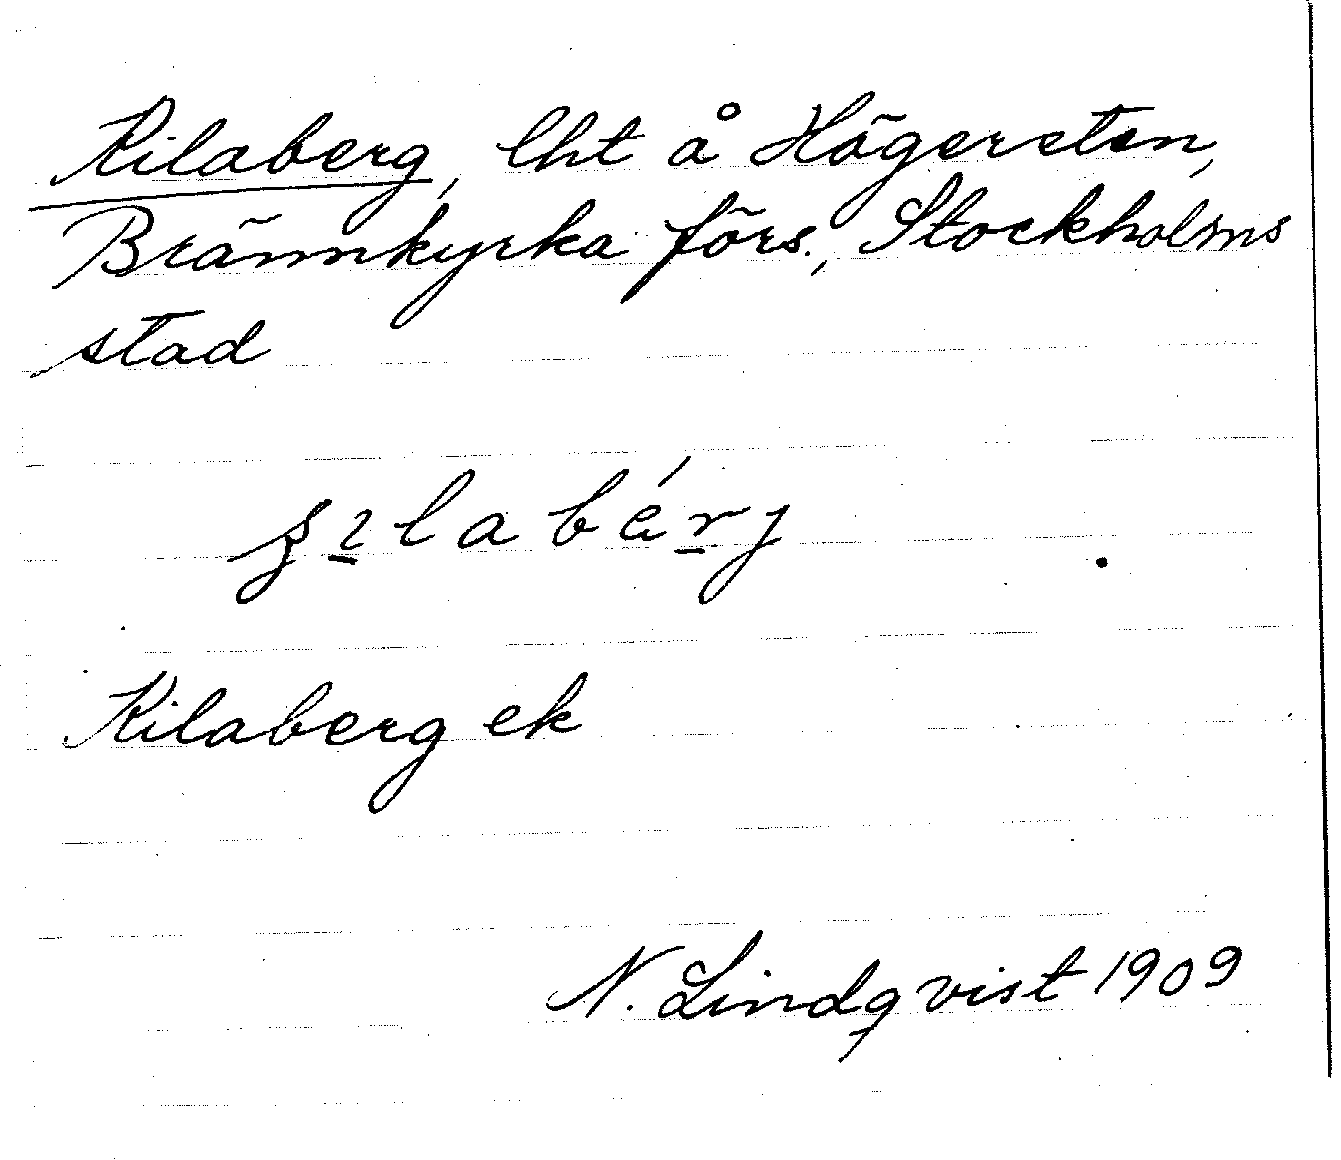 Kilaberg, lht å Hägersten,
Brännkyrka förs., Stockholms
stad
Kilaberg ek
N. Lindqvist 1909